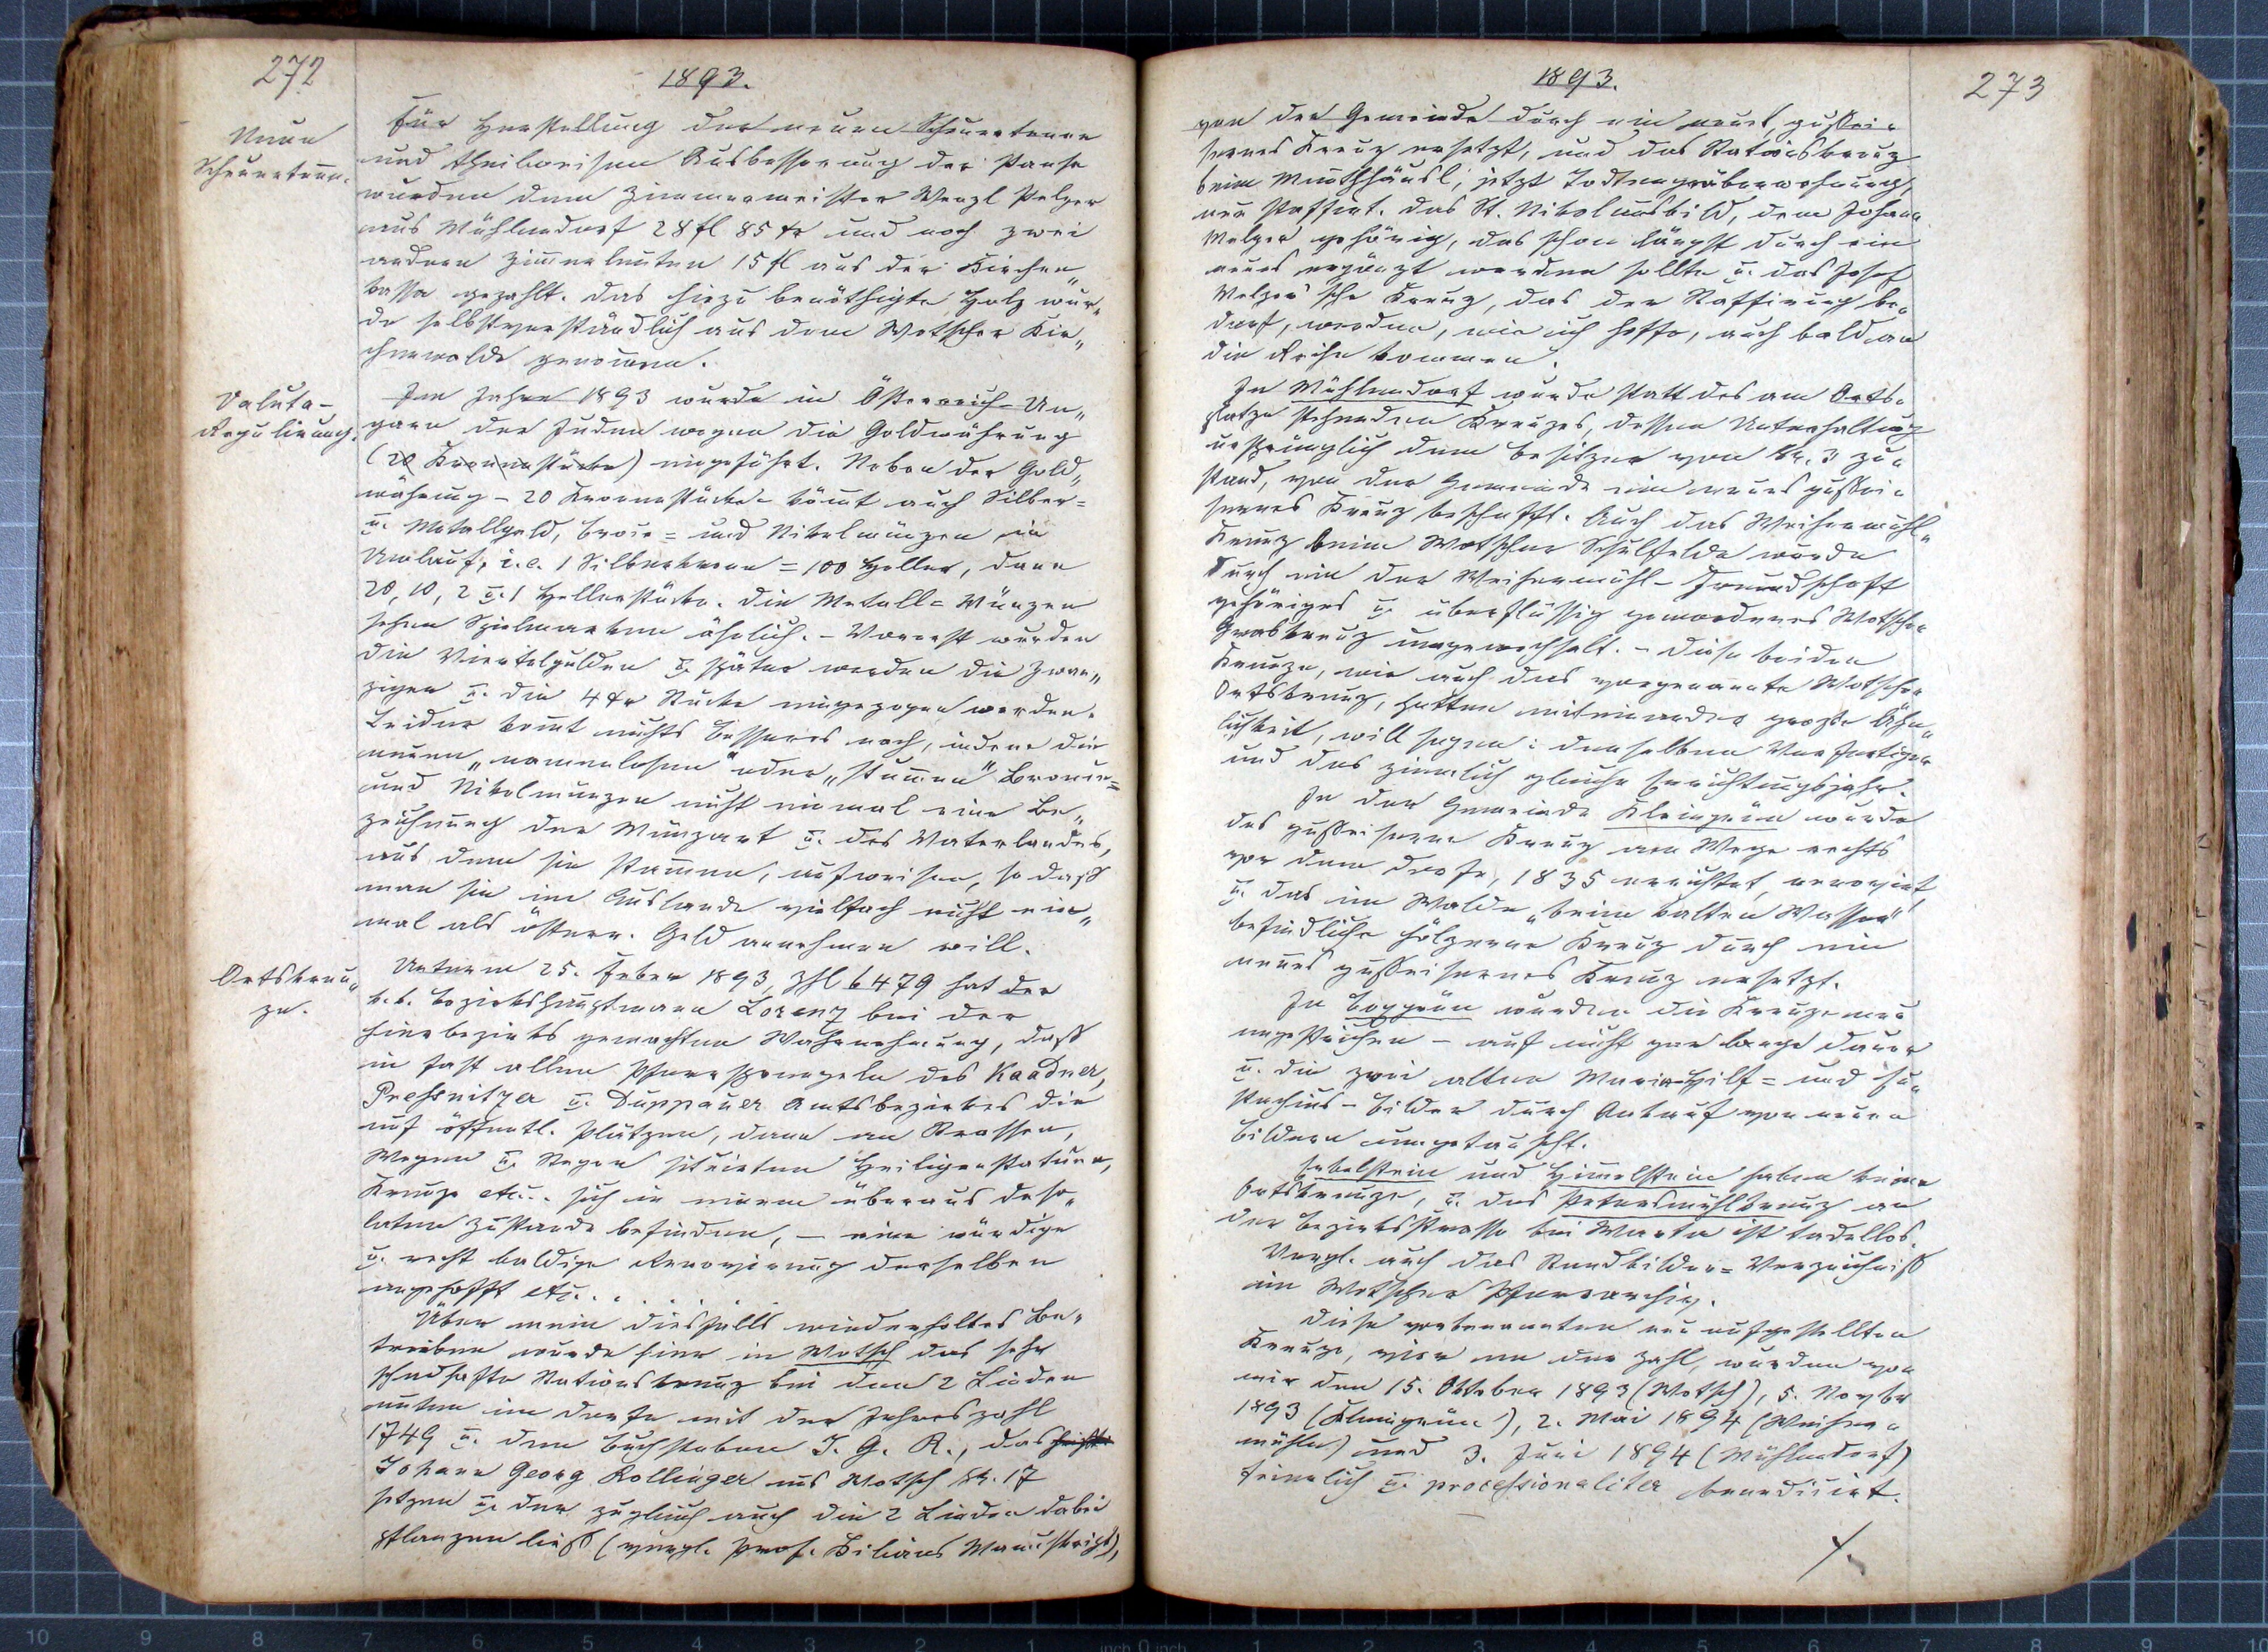 272
1893.
Neue
Scheuertenn.
Für Herstellung der neuen Scheuertenne
und theilweisen Ausbesserung der Panse
wurden dem Zimmermeister Wenzl Pelger
aus Mühlendorf 28 fl 85 kr und noch zwei
andern Zimmerleuten 15 fl aus der Kirchen„
kassa gezahlt. Das hiezu benöthigte Holz wur„
de selbstverständlich aus dem Wotscher Kir„
chenwalde genom̄en.
Valuta-
Regulierung.
Im Jahre 1893 wurde in Österreich-Un„
garn der Juden wegen die Goldwährung
(20 Kronenstücke) eingeführt. Neben der Gold„
währung – 20 Kronenstücke – köm̄t auch Silber=
u. Metallgeld, Bronze= und Nikelmünzen in
Umlauf, i.e. 1 Silberkrone = 100 Heller, dann
20, 10, 2 u. 1 Hellerstücke. Die Metall= Münzen
sehen Spielmarken ähnlich. – Vorerst wurden
die Viertelgulden u. später werden die Zwan„
ziger u. die 4 kr Stücke eingezogen werden.
Leider kom̄t nichts Besseres nach, indem die
neuen „namenlosen" oder „stum̄en" Bronze=
und Nikelmünzen nicht einmal eine Be„
zeichnung der Münzart u. des Vaterlandes,
aus dem sie stam̄en, aufweisen, so daß
man sie im Auslande vielfach nicht ein„
mal als österr. Geld annehmen will.
Ortskreu„
ze.
Unterm 25. Feber 1893, Zhl 6479 hat der
k.k. Bezirkshauptmann Lorenz bei der
hierbezirks gemachten Wahrnehmung, daß
in fast allen Pfarrsprengeln des Kaadner,
Pressnitzer u. Duppauer Amtsbezirkes die
auf öffentl. Plätzen, dann an Strassen,
Wegen u. Stegen situirten Heiligenstatuen,
Kreuze etc.. sich in einem überaus deso„
laten Zustande befinden, – eine würdige
u. recht baldige Renovierung derselben
angehofft etc. . . . . . .
Über mein diesfalls wiederholtes Be„
treiben wurde hier in Wotsch das sehr
schadhafte Stationskreuz bei den 2 Linden
unten im Dorfe mit der Jahreszahl
1749 u. den Buchstaben J. G. R., das
Johann Georg Rollinger aus Wotsch Nr. 17
setzen u. der zugleich auch die 2 Linden dabei
pflanzen ließ (vergl. Prof. Kilians Manuskript),
1893.
273
von der Gemeinde durch ein neues, gußei„
sernes Kreuz ersetzt, und das Stationskreuz
beim Mauthhäusl, jetzt Todtengräberwohnung,
neu staffirt. Das St. Nikolausbild, dem Johann
Melzer gehörig, das schon längst durch ein
neues ergänzt werden sollte u. das Josef
Melzer'sche Kreuz, das der Staffirung be„
darf, werden, wie ich hoffe, auch bald an
die Reihe kommen.
In Mühlendorf wurde statt des am Orts„
platze stehenden Kreuzes, dessen Unterhaltung
ursprünglich dem Besitzer von Nr. 3 zu„
stand, von der Gemeinde ein neues gußei„
sernes Kreuz beschafft. Auch das Weihermühl„
Kreuz beim Wotscher Schulfelde wurde
durch ein der Weihermühl-Freundschaft
gehöriges u. überflüssig gewordenes Wotscher
Grabkreuz umgewechselt. – Diese beiden
Kreuze, wie auch das vorgenannte Wotscher
Ortskreuz, hatten miteinander große Ähn„
lichkeit, will sagen: denselben Verfertiger
und das ziemlich gleiche Errichtungsjahr.
In der Gemeinde Kleingrün wurde
das gußeiserne Kreuz am Wege rechts
vor dem Dorfe, 1835 errichtet, renovirt,
u. das im Walde „beim kalten Wasser"
befindliche hölzerne Kreuz durch ein
neues gußeisernes Kreuz ersetzt.
In Boxgrün wurden die Kreuze neu
angestrichen – auf nicht gar lange Dauer
u. die zwei alten Maria-Hilf= und Eu„
stachius-Bilder durch Ankauf von neuen
Bildern umgetauscht.
Gabelstein und Him̄elstein haben keine
Ortskreuze, u. das Petersmühlkreuz an
der Bezirksstrasse bei Warta ist tadellos.
Vergl. auch das Standbilder=Verzeichniß
im Wotscher Pfarrarchiv.
Diese vorbenannten neu aufgestellten
Kreuze, vier an der Zahl, wurden von
mir den 15. Oktober 1893 (Wotsch), 5. Novber
1893 (Kleingrün), 2. Mai 1894 (Weiher„
mühle) und 3. Juni 1894 (Mühlendorf)
feierlich u. processionaliter benedicirt.